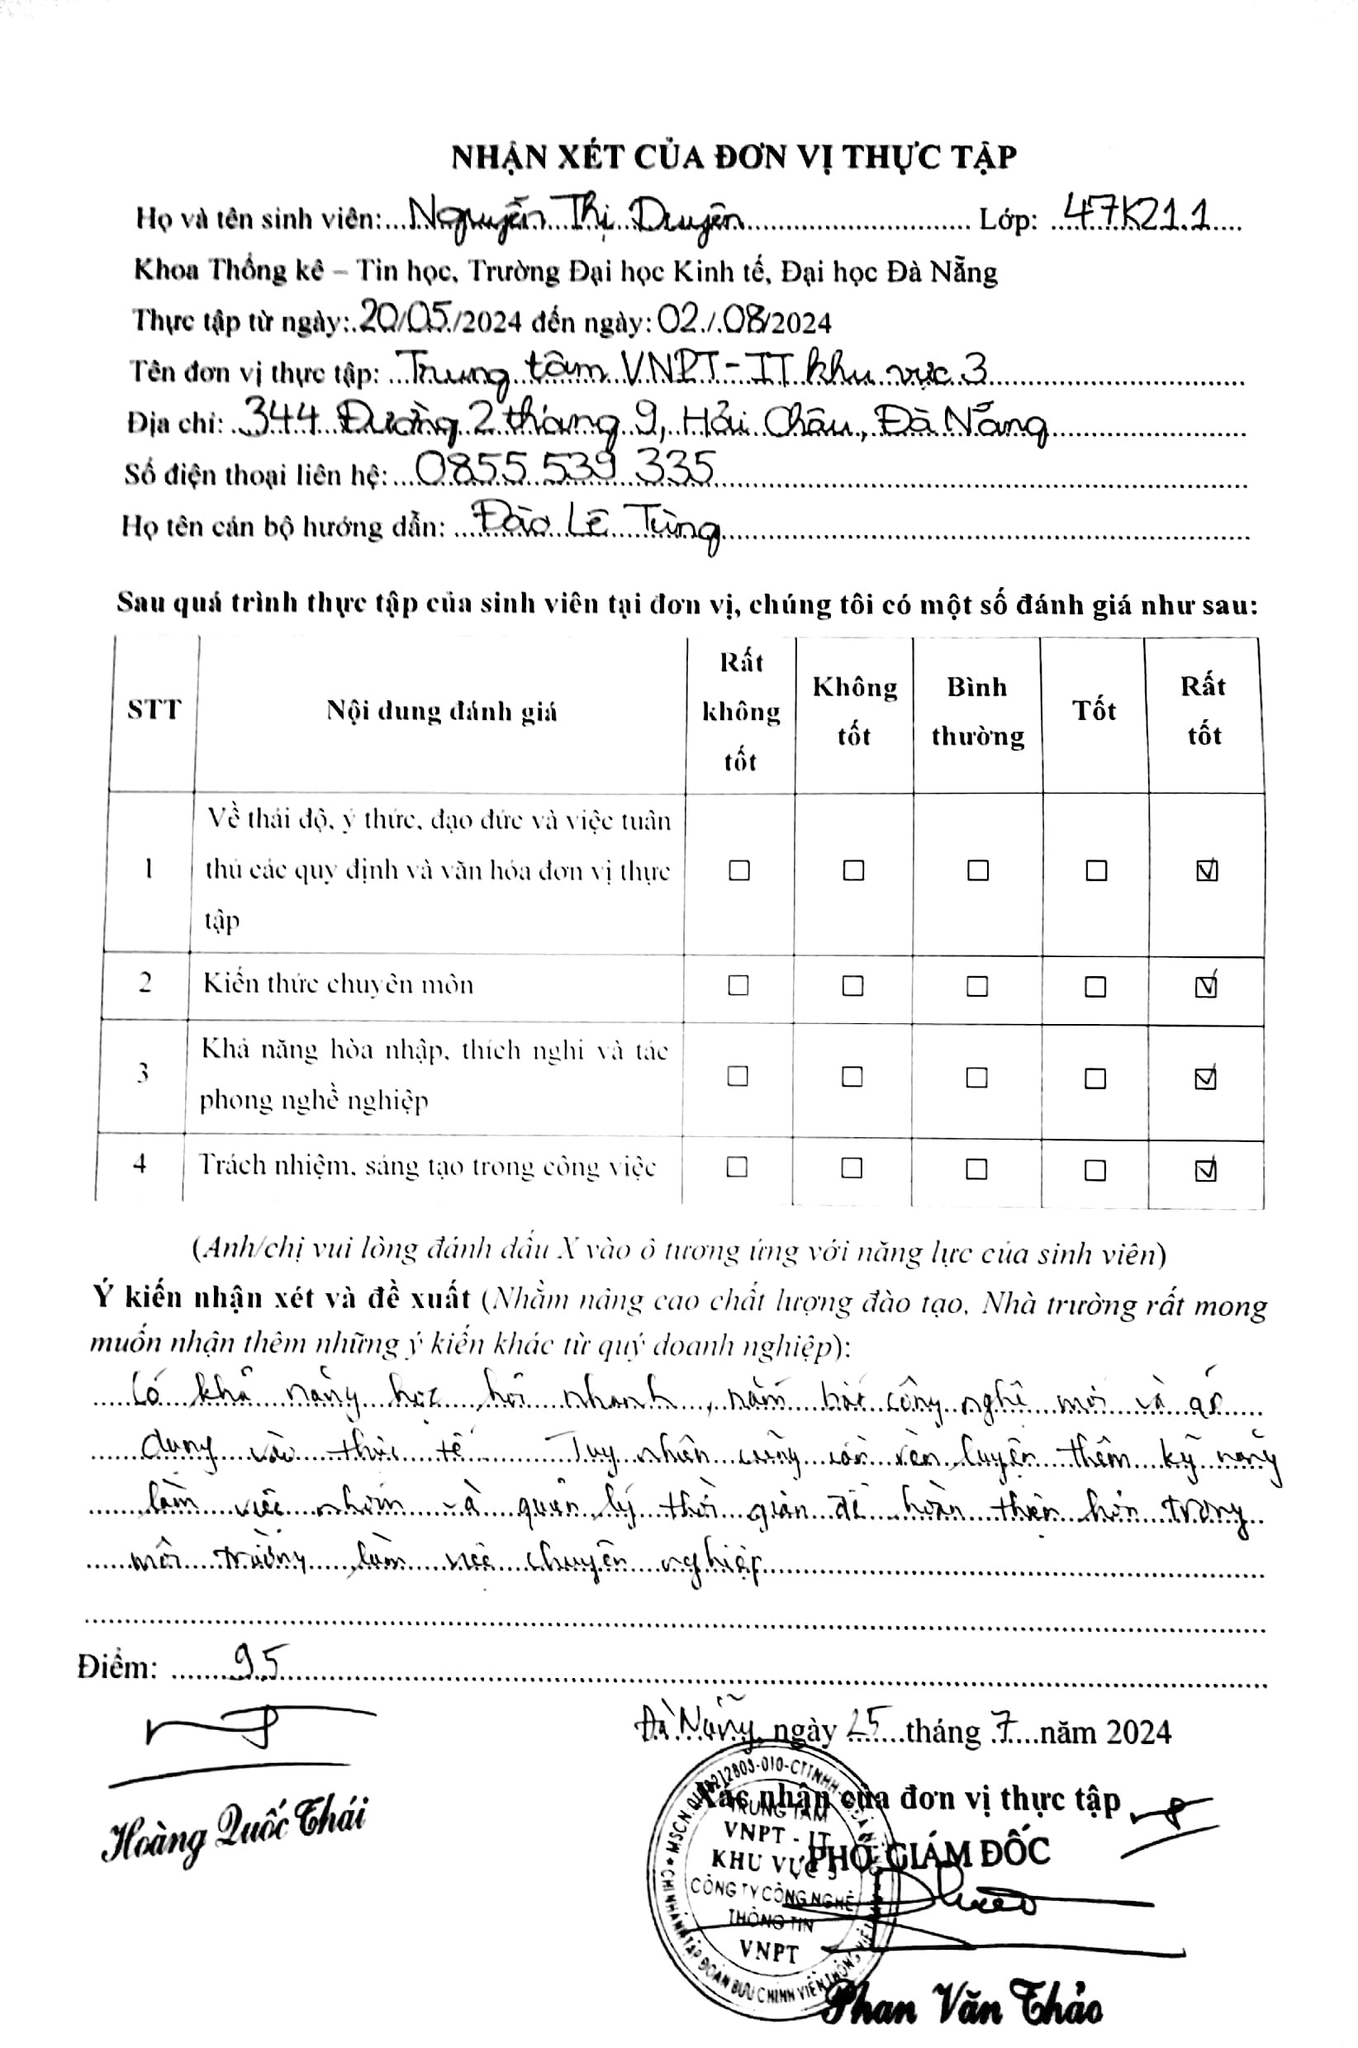 NHẬN XÉT CỦA ĐƠN VỊ THỰC TẬP
Họ và tên sinh viên: Nguyễn Thị Duyên Lớp: 47K21.1
Khoa Thống kê – Tin học, Trường Đại học Kinh tế, Đại học Đà Nẵng
Thực tập từ ngày: 20/05/2024 đến ngày: 02/08/2024
Tên đơn vị thực tập: Trung tâm VNPT-IT khu vực 3
Địa chỉ: 344 Đường 2 tháng 9, Hải Châu, Đà Nẵng
Số điện thoại liên hệ: 0855 539 335
Họ tên cán bộ hướng dẫn: Đào Lê Tùng
Sau quá trình thực tập của sinh viên tại đơn vị, chúng tôi có một số đánh giá như sau:
STT Nội dung đánh giá Rất không tốt Không tốt Bình thường Tốt Rất tốt
Về thái độ, ý thức, đạo đức và việc tuân
1 thủ các quy định và văn hóa đơn vị thực ☐ ☐ ☐ ☐ ☑
tập
2 Kiến thức chuyên môn ☐ ☐ ☐ ☐ ☑
3 Khả năng hòa nhập, thích nghi và tác ☐ ☐ ☐ ☐ ☑
phong nghề nghiệp
4 Trách nhiệm, sáng tạo trong công việc ☐ ☐ ☐ ☐ ☑
(Anh/chị vui lòng đánh dấu X vào ô tương ứng với năng lực của sinh viên)
Ý kiến nhận xét và đề xuất (Nhằm nâng cao chất lượng đào tạo, Nhà trường rất mong
muốn nhận thêm những ý kiến khác từ quý doanh nghiệp):
Có khả năng học hỏi nhanh, nắm bắt công nghệ mới và áp
dụng vào thực tế. Tuy nhiên cũng cần rèn luyện thêm kỹ năng
làm việc nhóm và quản lý thời gian để hoàn thiện hơn trong
môi trường làm việc chuyên nghiệp
Điểm: 9.5
Đà Nẵng, ngày 25 tháng 7 năm 2024
Xác nhận của đơn vị thực tập
PHÓ GIÁM ĐỐC
Hoàng Quốc Thái
TRUNG TÂM
VNPT - IT
KHU VỰC 3
CÔNG TY CÔNG NGHỆ
THÔNG TIN
VNPT
Phan Văn Thảo